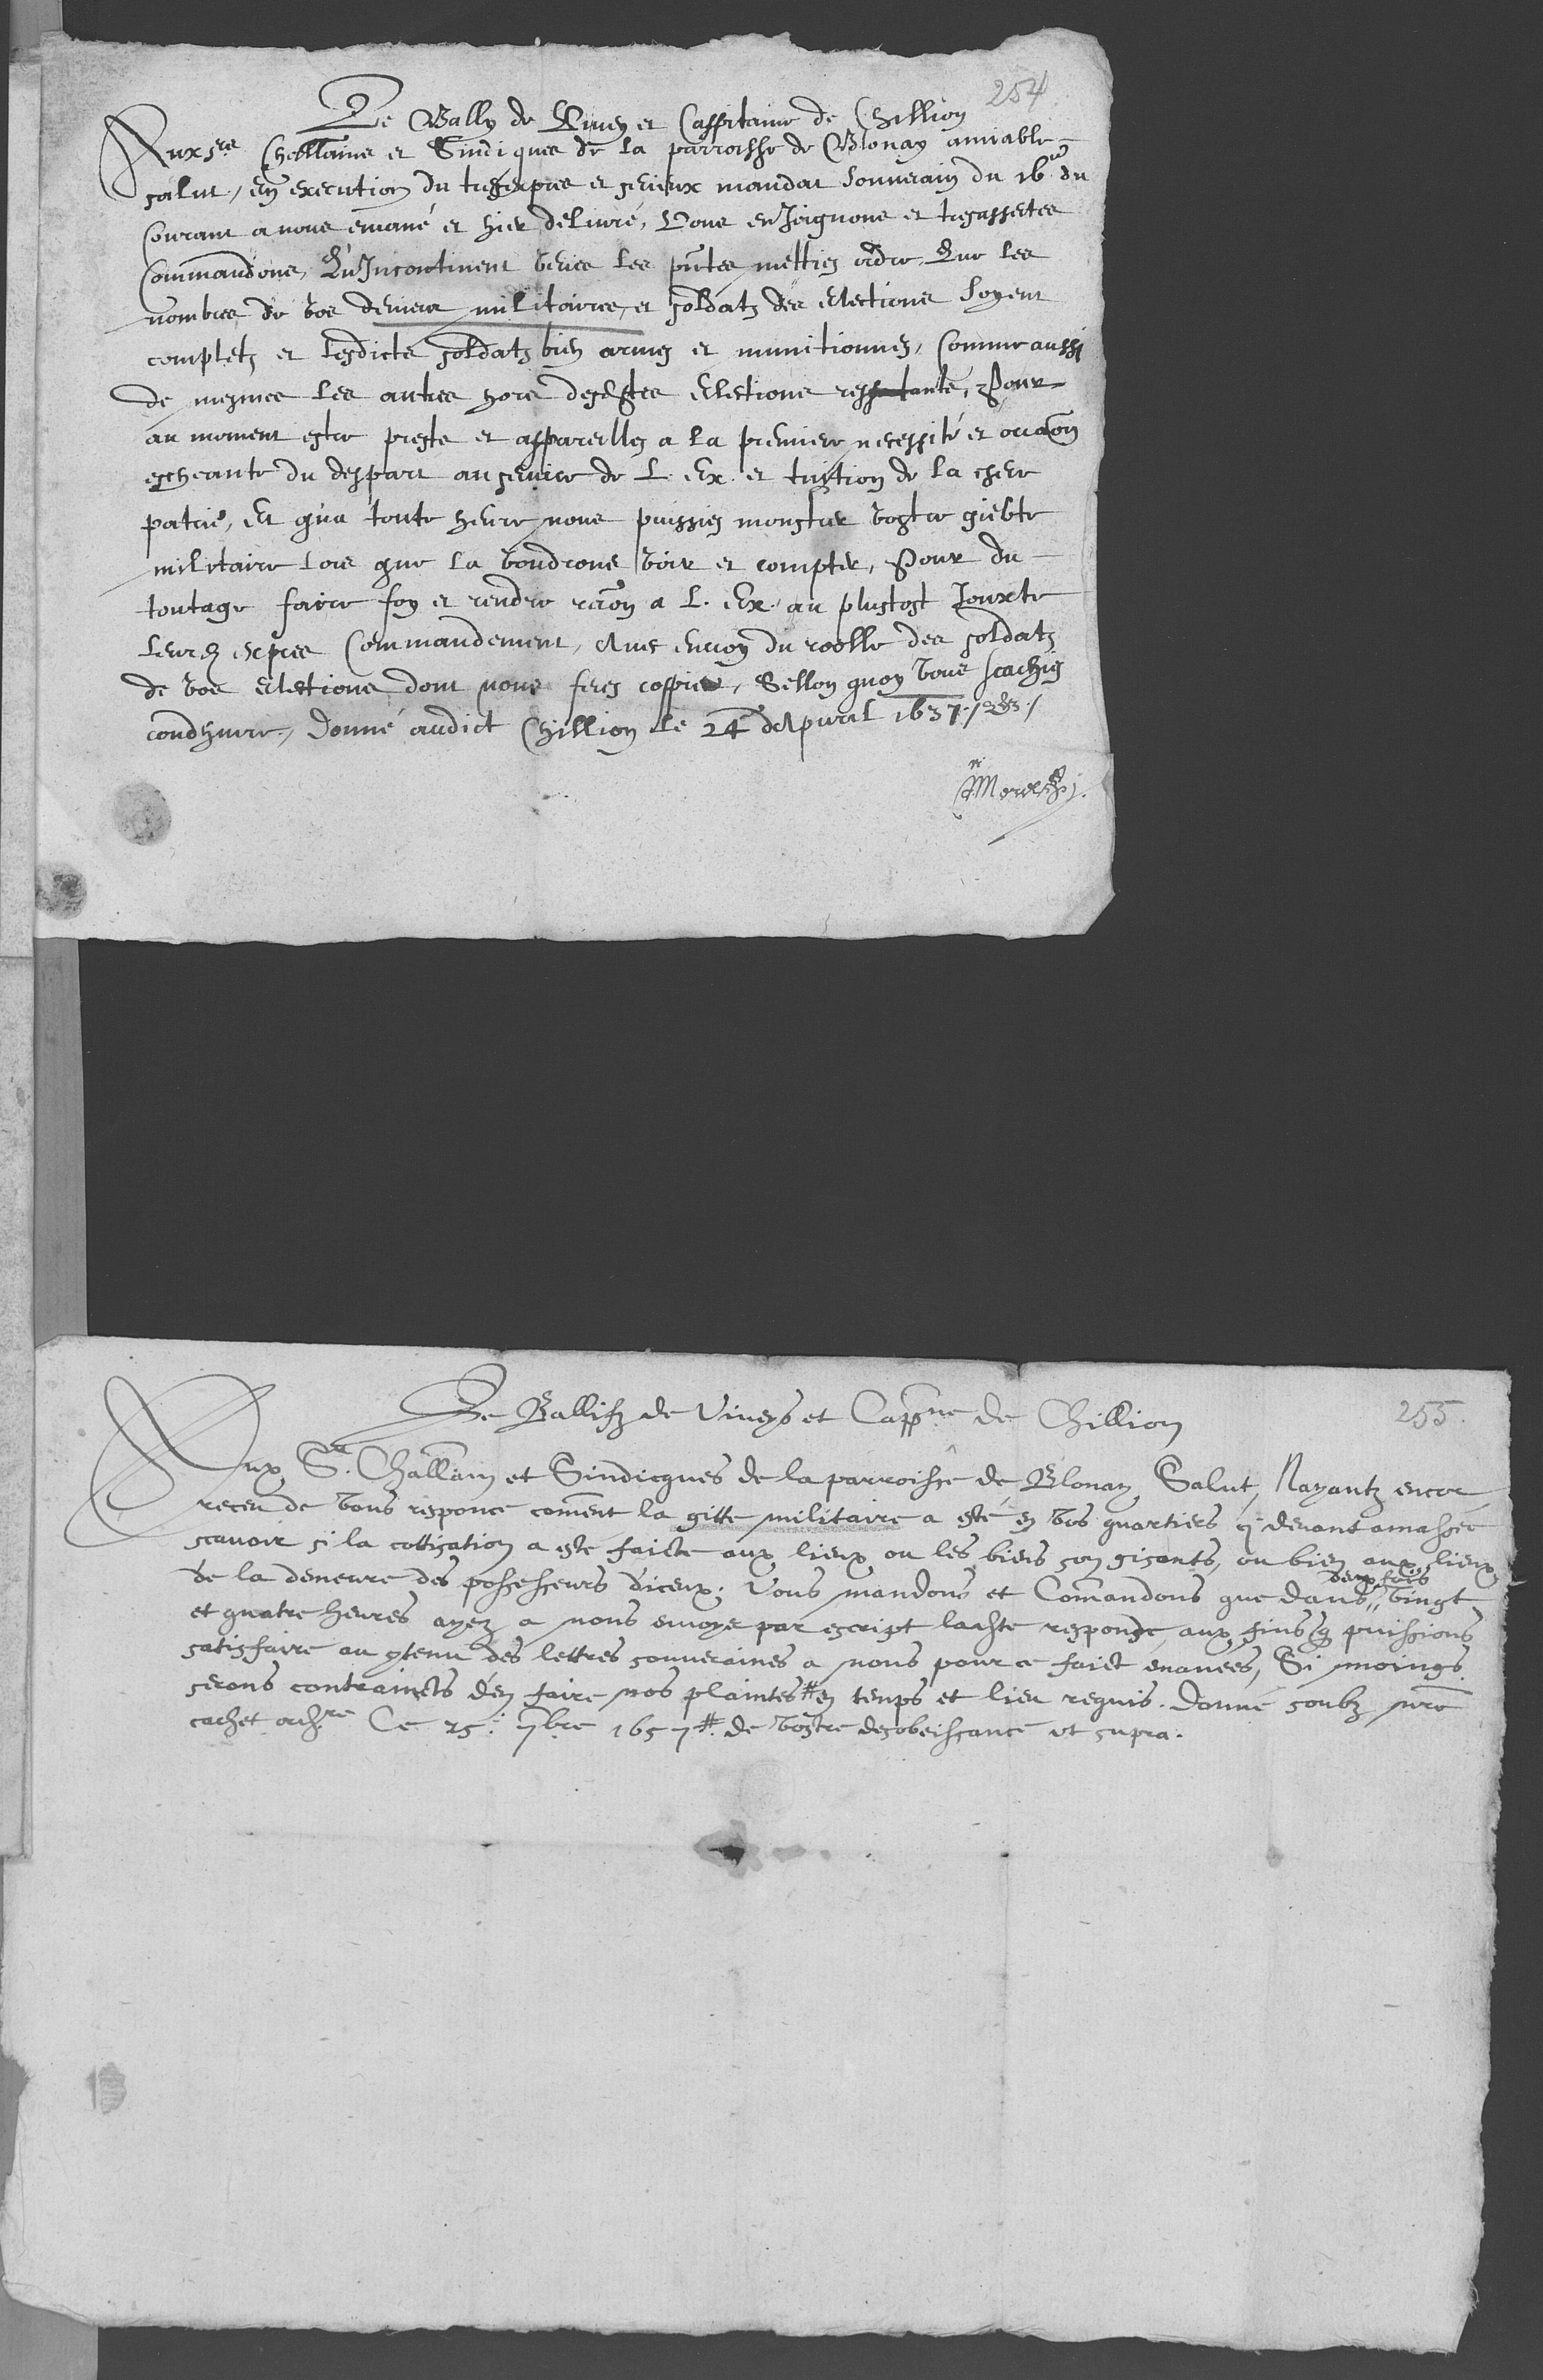 254
Le Bally de Vivey et Cappitaine de Chillion
Aux srs Chellains et Sindiques de la parroisse de Blonay amiable
salut, en execution du tresexpres et serieux mandat souverain du 16me du
Courant a nous emané et hier delivré, Vous enJoignons et tresacertes
Commandons, Qu'Incontinent veues les pntes metties ordre Que les
nombres de vos deniers militaires, et soldatz des elections soyent
completz et lesdicts soldatz bien armes et munitionnes, Comme aussi
de mesmes les autres hors desdtes elections, Pour
au moment estre prests et appareilles a la premiere necessité et occaon
escheante du despart au service de L. Ex. et tuition de la chere
patrie, Et qu'a toute heure nous puissies monstrer vostre giebte
militaire lors que la voudrons voir et compter, Pour du
toutage faire foy et rendre raon a L. Ex. au plustost Jouxte
leurs expres Commandement, Avec envoy du roolle des soldatz
de vos elections dont nous feres coppie, Sellon quoy vous scachies
condhuire, Donné audict Chillion le 24 d'Apvril 1657./.
255.
Le Ballifz de Viveys et Cappne de Chillion
Aux Srs. Challain et Sindicques de la parroisse de Blonay Salut, Nayantz encor
receu de vous responce coment la gitte militaire a esté en vos quartiers cy devant amassée
scavoir si la cottisation a este faicte aux lieux ou les biens son gisants, ou bien aux lieux
de la demeure des possesseurs d'iceux. Vous mandons et Comandons que dans deux fois vingt
et quatre heures ayez a nous envoye par escript ladte responce, aux fins q puissions
satisfaire au 9tenu des lettres souveraines a nous pour ce faict emanees, Si moings
serons contraincts d'en faire nos plaintes # en temps et lieu requis. Donné soubz nre
cachet ordre Ce 25: 7bre 1657 #. de vostre desobeissance ut supra.